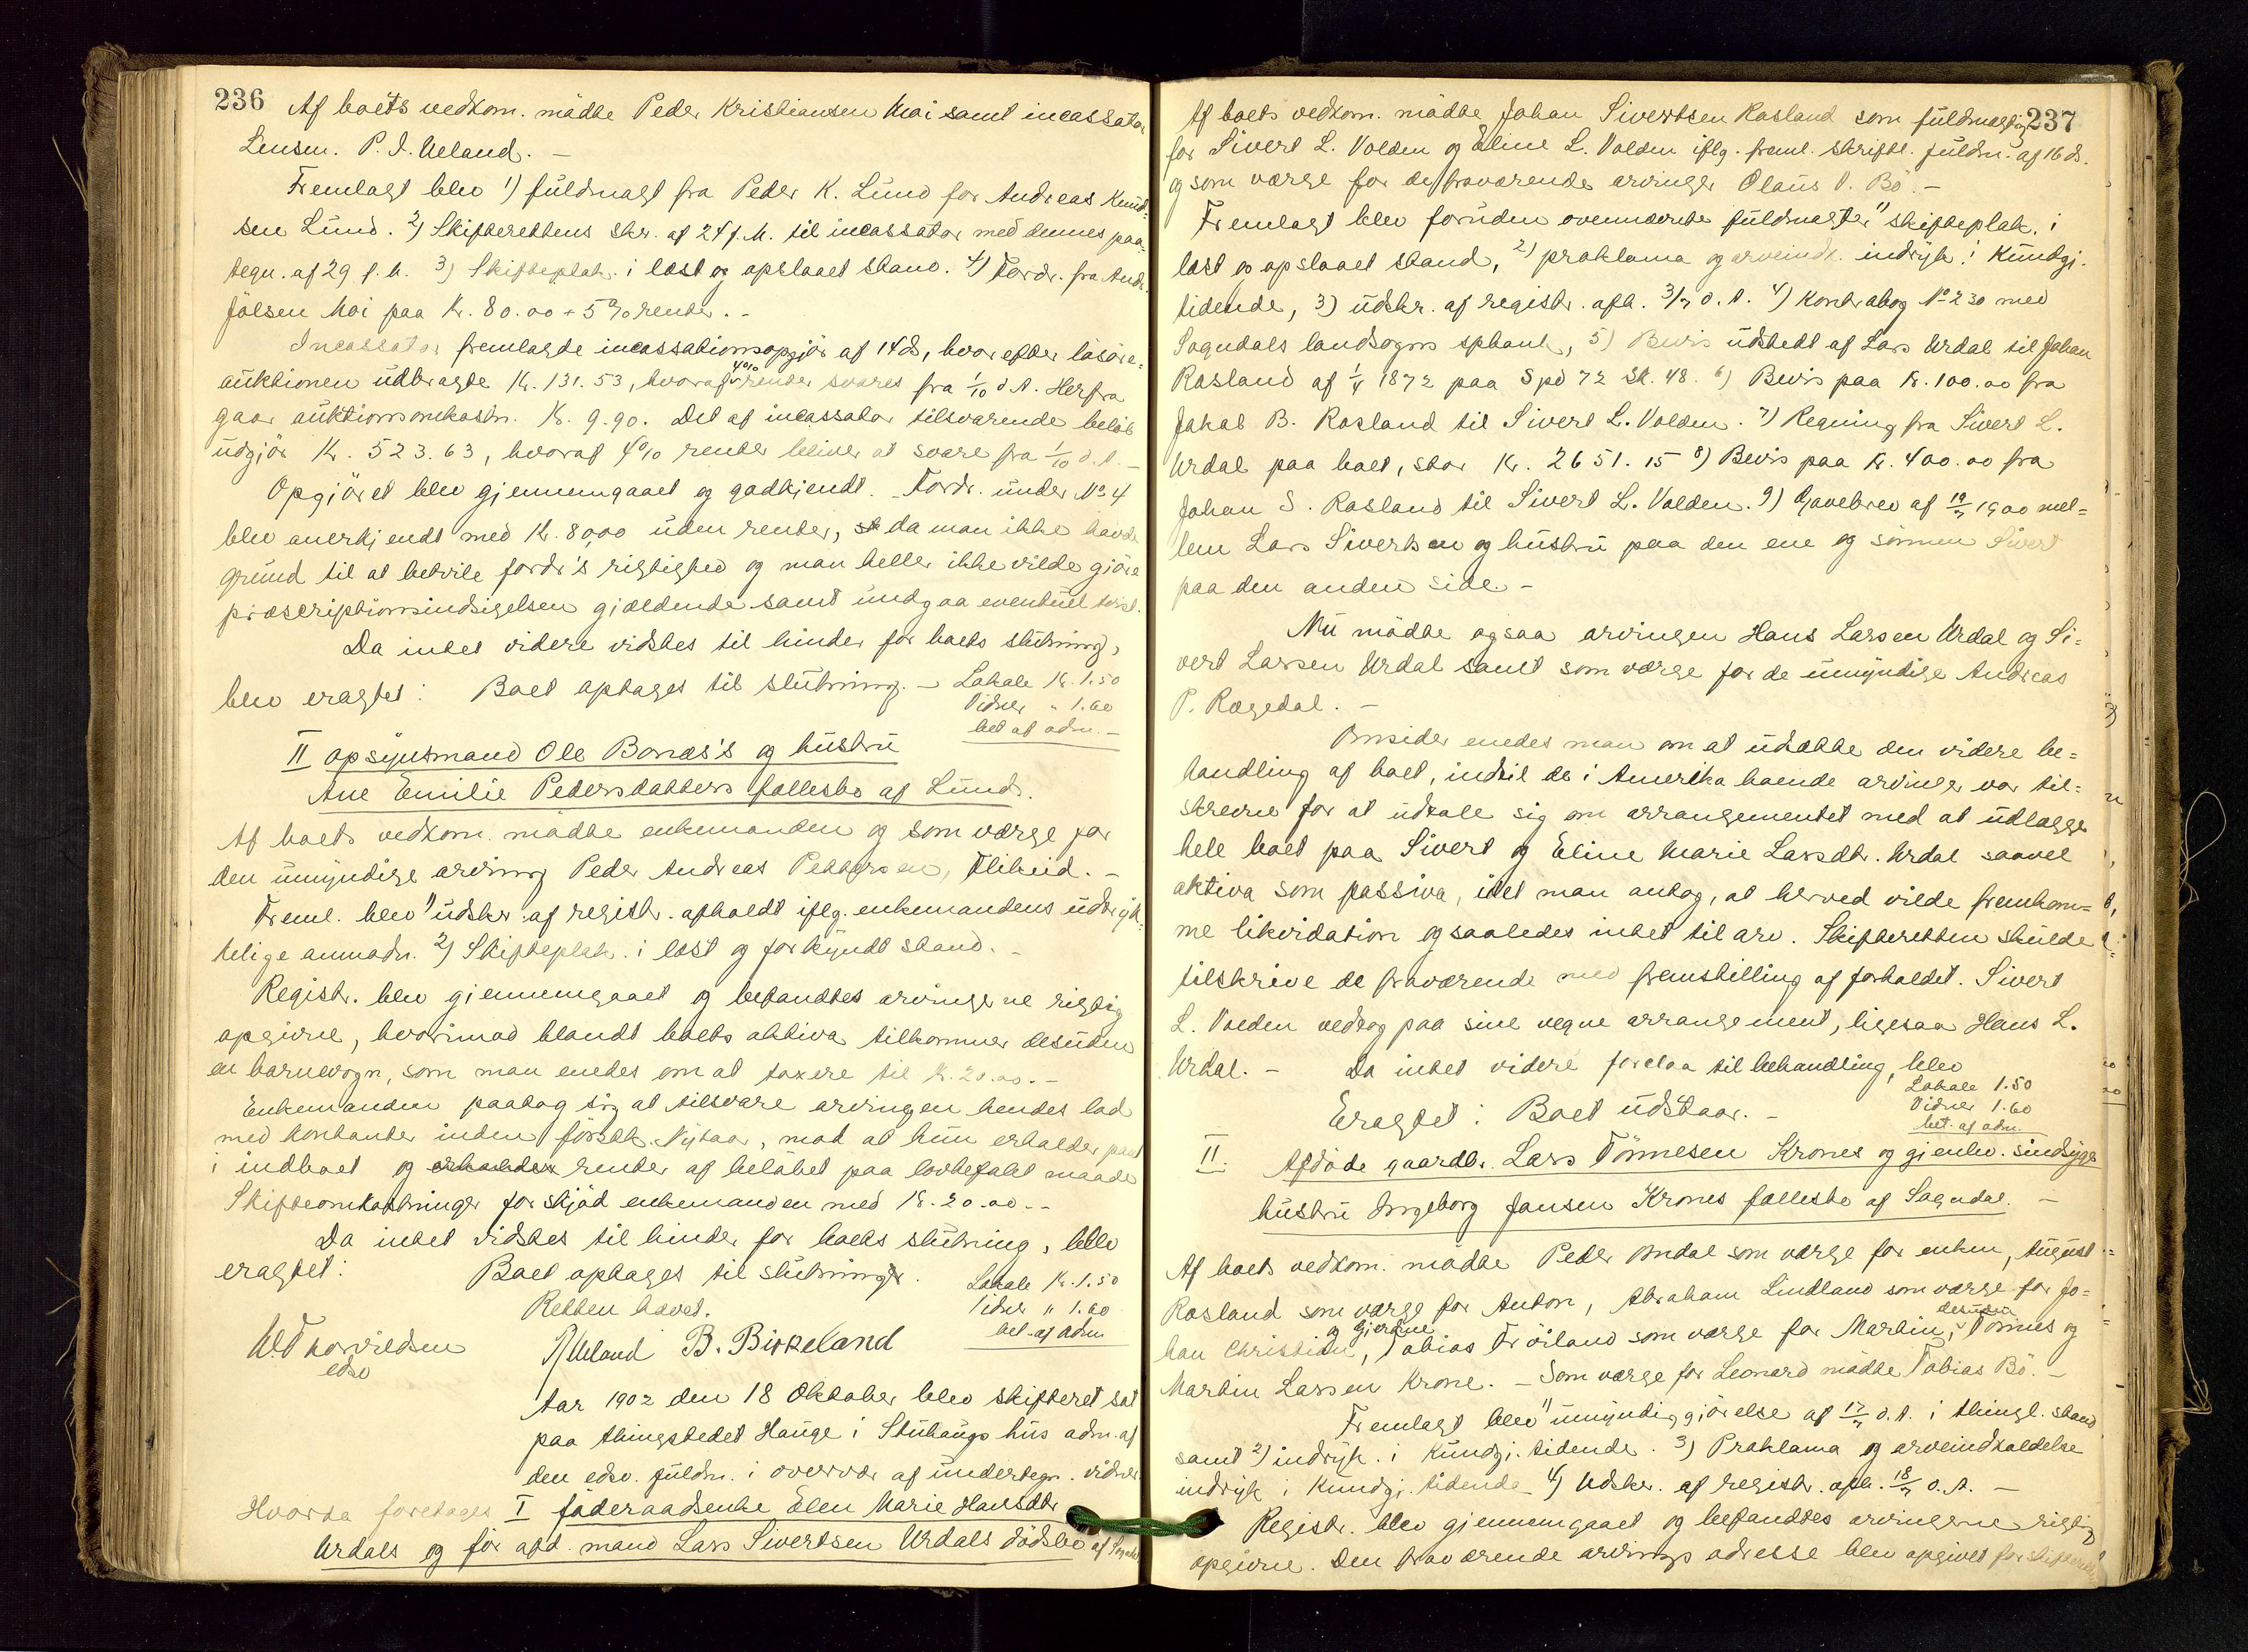 236
Af boets vedkom. mødte Peder Kristiansen Moi samt incassator
Lensm. P. I. Ueland. —
Fremlagt blev 1) fuldmagt fra Peder K. Lund for Andreas Knud-
sen Lund. 2) Skifterettens skr. af 24 f. M. til incassator med dennes paa-
tegn. af 29 f. M. 3) Skifteplak. i læst og opslaaet stand. 4) Fordr. fra Andr.
Jölsen Moi paa Kr. 80.00 + 5% renter. -
Incassator fremlagde incassationsopgjör af 14 ds, hvorefter lösöre-
auktionen udbragte Kr. 131.53, hvoraf 4% renter svares fra 1/10 d. A. Herfra
gaar auktionsomkostn. Kr. 9.90. Det af incassator tilsvarende belöb
udgjör Kr. 523.63, hvoraf 4% renter bliver at svare fra 1/10 d. A. —
Opgjöret blev gjennemgaaet og godkjendt. Fordr. under No 4
blev anerkjendt med Kr. 80,00 uden renter, da man ikke havde
grund til at betvile fordr's rigtighed og man heller ikke vilde gjöre
præscriptionsindsigelsen gjældende samt undgaa eventuel tvist.
Da intet videre vidstes til hinder for boets slutning,
blev eragtet: Boet optages til slutning. — Lokale Kr. 1.50
Vidner " 1.60
bet af adm. —
II opsynsmand Ole Bonæs's og hustru
Ane Emilie Pedersdatters fællesbo af Lund.
Af boets vedkom. mødte enkemanden og som værge for
den umyndige arving Peder Andreas Pettersen, Flikeid. —
Freml. blev 1) udskr. af registr. afholdt iflg. enkemandens udtryk-
kelige anmodn. 2) Skifteplak. i læst og forkyndt stand. -
Registr. blev gjennemgaaet og befandtes arvingerne rigtig
opgivne, hvorimod blandt boets aktiva tilkommer desuden
en barnevogn, som man enedes om at taxere til Kr. 20.00. —
Enkemanden paatog sig at tilsvare arvingen hendes lod
med kontanter inden förstk. Nytaar, mod at hun erholder pant
i indboet og erholder renter af belöbet paa lovbefalt maade
Skifteomkostninger forskjöd enkemanden med Kr. 20.00. -
Da intet vidstes til hinder for boets slutning, blev
eragtet: Boet optages til slutning. Lokale Kr. 1.50
Retten hævet. Vidner " 1.60
bet. af adm.
edsv
P. Ueland B. Birkeland
Aar 1902 den 18 Oktober blev skifteret sat
paa thingstedet Hauge i Stuhaugs hus adm. af
den edsv. fuldm. i overvær af undertegn. vidner
Hvorda foretages I föderaadsenke Elen Marie Hansdtr
Urdals og för afd. mand Lars Sivertsen Urdals dödsbo af Sogndal
237
Af boets vedkom. mødte Johan Sivertsen Rosland som fuldmægtig
for Sivert L. Volden og Eline L. Volden iflg. freml. skriftl. fuldm. af 16 ds.
og som værge for de fraværende arvinger Olaus T. Bö. —
Fremlagt blev foruden ovennævnte fuldmagter 1) skifteplak. i
læst og opslaaet stand, 2) proklama og arveindk. indryk. i Kundgj.
tidende, 3) udskr. af registr. afh. 3/7 d. A. 4) Kontrabog No 230 med
Sogndals landsogns spbank, 5) Bevis udstedt af Lars Urdal til Johan
Rosland af 1/4 1872 paa Spd 72 Sk. 48. 6) Bevis paa Kr. 100.00 fra
Jakob B. Rosland til Sivert L. Volden. 7) Regning fra Sivert L.
Urdal paa boet, stor Kr. 2651.15 8) Bevis paa Kr. 400.00 fra
Johan S. Rosland til Sivert L. Volden. 9) Gavebrev af 19/7 1900 mel=
lem Lars Sivertsen og hustru paa den ene og sönnen Sivert
paa den anden side. —
Nu mödte ogsaa arvingen Hans Larsen Urdal og Si=
vert Larsen Urdal samt som værge for de umyndige Andreas
P. Rægedal. —
Omsider enedes man om at udsætte den videre be=
handling af boet, indtil de i Amerika boende arvinger var til=
skrevne for at udtale sig om arrangementet med at udlægge
hele boet paa Sivert og Eline Marie Larsdtr. Urdal saavel
aktiva som passiva, idet man antog, at herved vilde fremkom=
me likvidation og saaledes intet til arv. Skifteretten skulde
tilskrive de fraværende med fremstilling af forholdet. Sivert
L. Volden vedtog paa sine vegne arrangement, ligesaa Hans L.
Urdal. — Da intet videre forelaa til behandling, blev
Eragtet: Boet udstaar. —
Lokale 1.50
Vidner 1.60
bet. af adm.
II. Afdöde gaardbr. Lars Tönnesen Krones og gjenlev. sindsyge
hustru Ingeborg Jansen Krones fællesbo af Sogndal. —
Af boets vedkom. mødte Peder Omdal som værge for enken, August
Rosland som værge for Anton, Abraham Lindland som værge for Jo=
han Christian og Gjertine, Tobias Fröiland som værge for Martin, desuden Tönnes og
Martin Larsen Krone. — Som værge for Leonard mødte Tobias Bö. —
Fremlagt blev 1) umyndiggjörelse af 17/7 d. A. i thingl. stand
samt 2) indryk. i Kundgj. tidende. 3) Proklama og arveindkaldelse
indryk i Kundgj. tidende 4) Udskr. af registr. afh. 18/7 d. A. —
Registr. blev gjennemgaaet og befandtes arvingerne rigtig
opgivne. Den fraværende arvings adresse blev opgivet for skifteretten